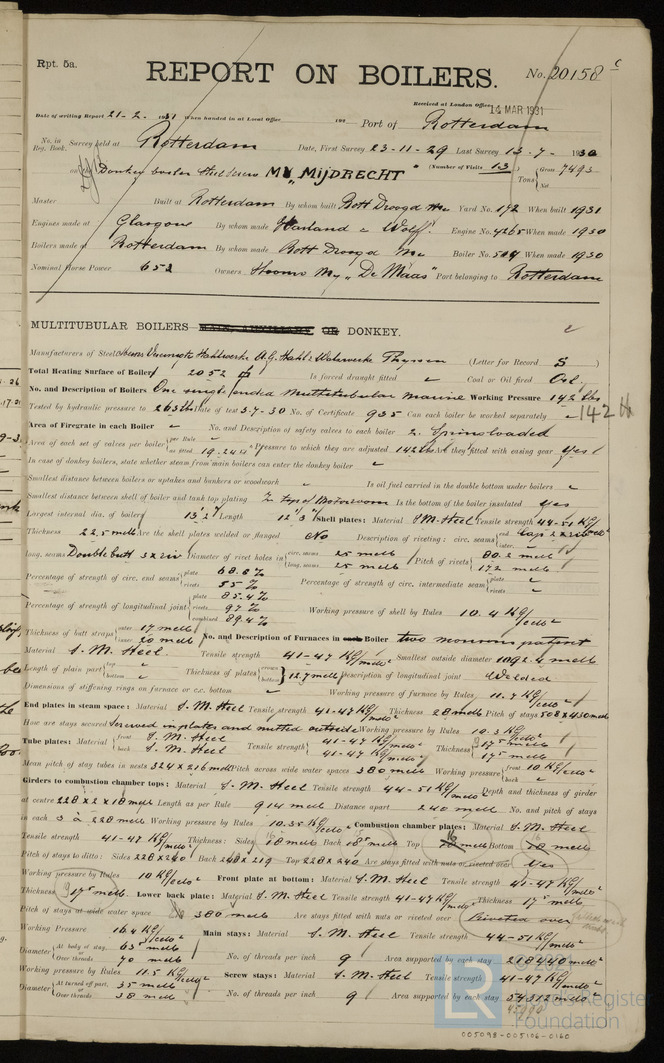 Rpt. 5a.
REPORT ON BOILERS.
No. 20158 c
Received at London Office 14 MAR 1931
Date of writing Report 21-2-1931 When handed in at Local Office 192 Port of Rotterdam
No. in Reg. Book. Survey held at Rotterdam Date, First Survey 23-11-29 Last Survey 13-7-1930
on the Donkey boiler Steel Screw MV "MIJDRECHT" (Number of Visits 13) Tons Gross 7493 Net
Master Built at Rotterdam By whom built Rott Droogd My Yard No. 172 When built 1931
Engines made at Glasgow By whom made Harland & Wolff Engine No. 4265 When made 1930
Boilers made at Rotterdam By whom made Rott Droogd My Boiler No. 504 When made 1930
Nominal Horse Power 652 Owners Stoomv My "De Maas" Port belonging to Rotterdam
MULTITUBULAR BOILERS MAIN, AUXILIARY OR DONKEY.
Manufacturers of Steel Vereinigte Stahlwerke A.G. Stahl & Walzwerke Thyssen (Letter for Record S)
Total Heating Surface of Boilers 2052 Is forced draught fitted Coal or Oil fired Oil
No. and Description of Boilers One single ended Multitubular marine Working Pressure 142 lbs
142 lb
Tested by hydraulic pressure to 263 lbs Date of test 3-7-30 No. of Certificate 935 Can each boiler be worked separately
Area of Firegrate in each Boiler No. and Description of safety valves to each boiler 2 Spring loaded
Area of each set of valves per boiler per Rule as fitted 19.24 Pressure to which they are adjusted 142 lbs Are they fitted with easing gear Yes
In case of donkey boilers, state whether steam from main boilers can enter the donkey boiler
Smallest distance between boilers or uptakes and bunkers or woodwork Is oil fuel carried in the double bottom under boilers
Smallest distance between shell of boiler and tank top plating In top of Motorroom Is the bottom of the boiler insulated Yes
Largest internal dia. of boilers 13' 2" Length 12' 3" Shell plates: Material S.M. Steel Tensile strength 44-51 KG/
Thickness 22.5 mells Are the shell plates welded or flanged No Description of riveting: circ. seams end Lap 2 x riv inter.
long. seams Double butt 3 x riv Diameter of rivet holes in circ. seams 25 mells long. seams 25 mells Pitch of rivets 80.2 mells 172 mells
Percentage of strength of circ. end seams plate 68.8 % rivets 55 % Percentage of strength of circ. intermediate seam plate rivets
Percentage of strength of longitudinal joint plate 85.4 % rivets 97 % combined 89.4 % Working pressure of shell by Rules 10.4 KG/
Thickness of butt straps outer 17 mells inner 20 mells No. and Description of Furnaces in each Boiler two morison patent
Material S.M. Steel Tensile strength 41-47 KG/ Smallest outside diameter 1092.4 mells
Length of plain part top bottom Thickness of plates crown bottom 12.7 mells Description of longitudinal joint Welded
Dimensions of stiffening rings on furnace or c.c. bottom Working pressure of furnace by Rules 11.7 KG/
End plates in steam space: Material S.M. Steel Tensile strength 41-47 KG/ Thickness 28 mells Pitch of stays 508 x 430 mells
How are stays secured Screwed in plates and nutted outside Working pressure by Rules 10.3 KG/
Tube plates: Material front S.M. Steel back S.M. Steel Tensile strength 41-47 KG/ 41-47 KG/ Thickness 17.5 mells 17.5 mells
Mean pitch of stay tubes in nests 324 x 216 mells Pitch across wide water spaces 380 mells Working pressure front 10 KG/ back
Girders to combustion chamber tops: Material S.M. Steel Tensile strength 44-51 KG/ Depth and thickness of girder
at centre 228 x 2 x 18 mells Length as per Rule 914 mells Distance apart 240 mells No. and pitch of stays
in each 3 à 228 mells Working pressure by Rules 10.35 KG/ Combustion chamber plates: Material S.M. Steel
Tensile strength 41-47 KG/ Thickness: Sides 18 mells Back 18.5 mells Top 18 mells Bottom 18 mells
Pitch of stays to ditto: Sides 228 x 240 Back 268 x 219 Top 228 x 240 Are stays fitted with nuts or riveted over Yes
Working pressure by Rules 10 KG/ Front plate at bottom: Material S.M. Steel Tensile strength 41-47 KG/
Thickness 17.5 mells Lower back plate: Material S.M. Steel Tensile strength 41-47 KG/ Thickness 17.5 mells
Pitch of stays at wide water space 380 mells Are stays fitted with nuts or riveted over Riveted over
Working Pressure 16.4 KG/ Main stays: Material S.M. Steel Tensile strength 44-51 KG/
Diameter At body of stay, 65 mells Over threads 70 mells No. of threads per inch 9 Area supported by each stay 218440 mells²
Working pressure by Rules 11.5 KG/ Screw stays: Material S.M. Steel Tensile strength 41-47 KG/
Diameter At turned off part, 35 mells Over threads 38 mells No. of threads per inch 9 Area supported by each stay 54312 mells²
LR
Lloyd's Register Foundation
005098-005106-0160